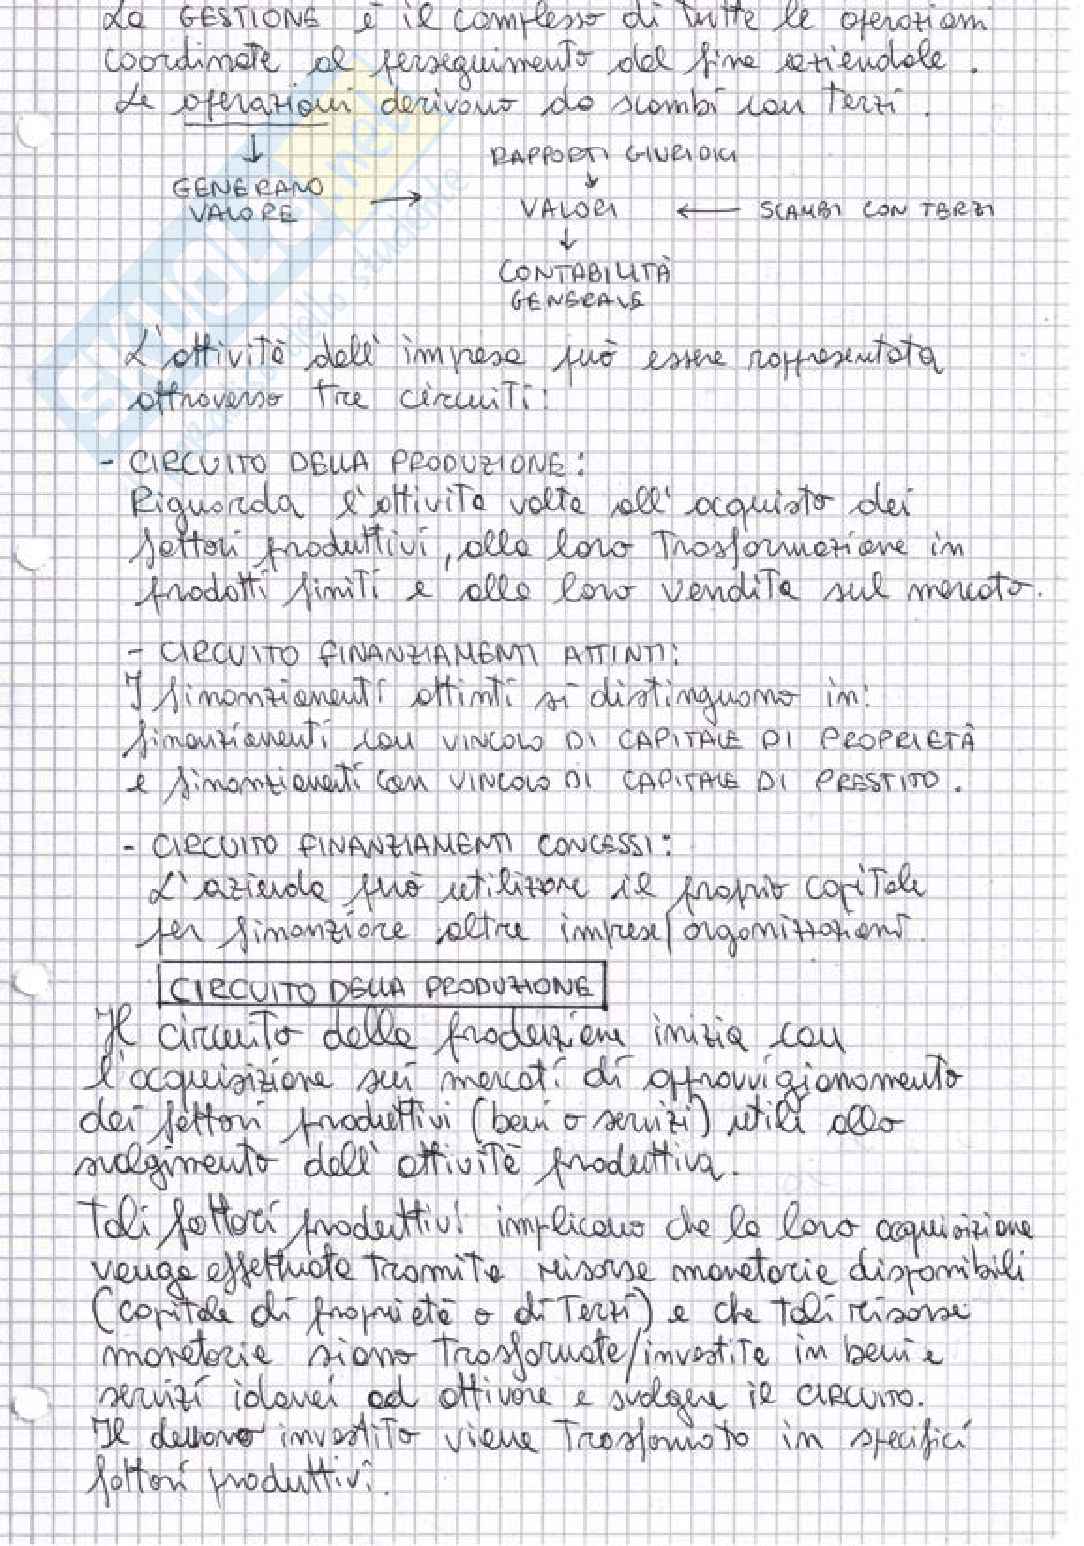 La GESTIONE è il complesso di tutte le operazioni
coordinate al perseguimento del fine aziendale.
Le operazioni derivano da scambi con terzi.
RAPPORTI GIURIDICI
GENERANO
VALORE → VALORI ← SCAMBI CON TERZI
CONTABILITÀ
GENERALE
L'attività dell'impresa può essere rappresentata
attraverso tre circuiti:
- CIRCUITO DELLA PRODUZIONE:
Riguarda l'attività volta all'acquisto dei
fattori produttivi, alla loro trasformazione in
prodotti finiti e alla loro vendita sul mercato.
- CIRCUITO FINANZIAMENTI ATTINTI:
I finanziamenti attinti si distinguono in:
finanziamenti con VINCOLO DI CAPITALE DI PROPRIETÀ
e finanziamenti con VINCOLO DI CAPITALE DI PRESTITO.
- CIRCUITO FINANZIAMENTI CONCESSI:
L'azienda può utilizzare il proprio capitale
per finanziare altre imprese/organizzazioni.
CIRCUITO DELLA PRODUZIONE
Il circuito della produzione inizia con
l'acquisizione sui mercati di approvvigionamento
dei fattori produttivi (beni o servizi) utili allo
svolgimento dell'attività produttiva.
Tali fattori produttivi implicano che la loro acquisizione
venga effettuata tramite risorse monetarie disponibili
(capitale di proprietà o di terzi) e che tali risorse
monetarie siano trasformate/investite in beni e
servizi idonei ad attivare e svolgere il CIRCUITO.
Il denaro investito viene trasformato in specifici
fattori produttivi.